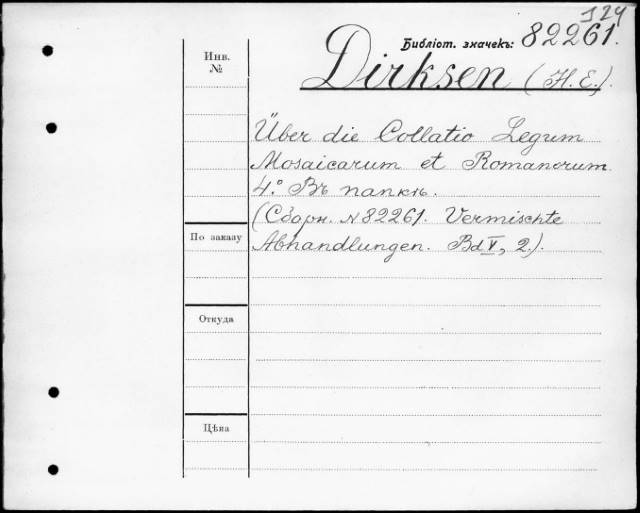 J24
Библіот. значекъ: 82261.
Инв.
№
Dirksen (H. E.).
Über die Collatio Legum
Mosaicarum et Romanorum
4.° Въ папкѣ.
(Сборн. N 82261. Vermischte
По заказу
Abhandlungen. Bd V, 2.).
Откуда
Цѣна